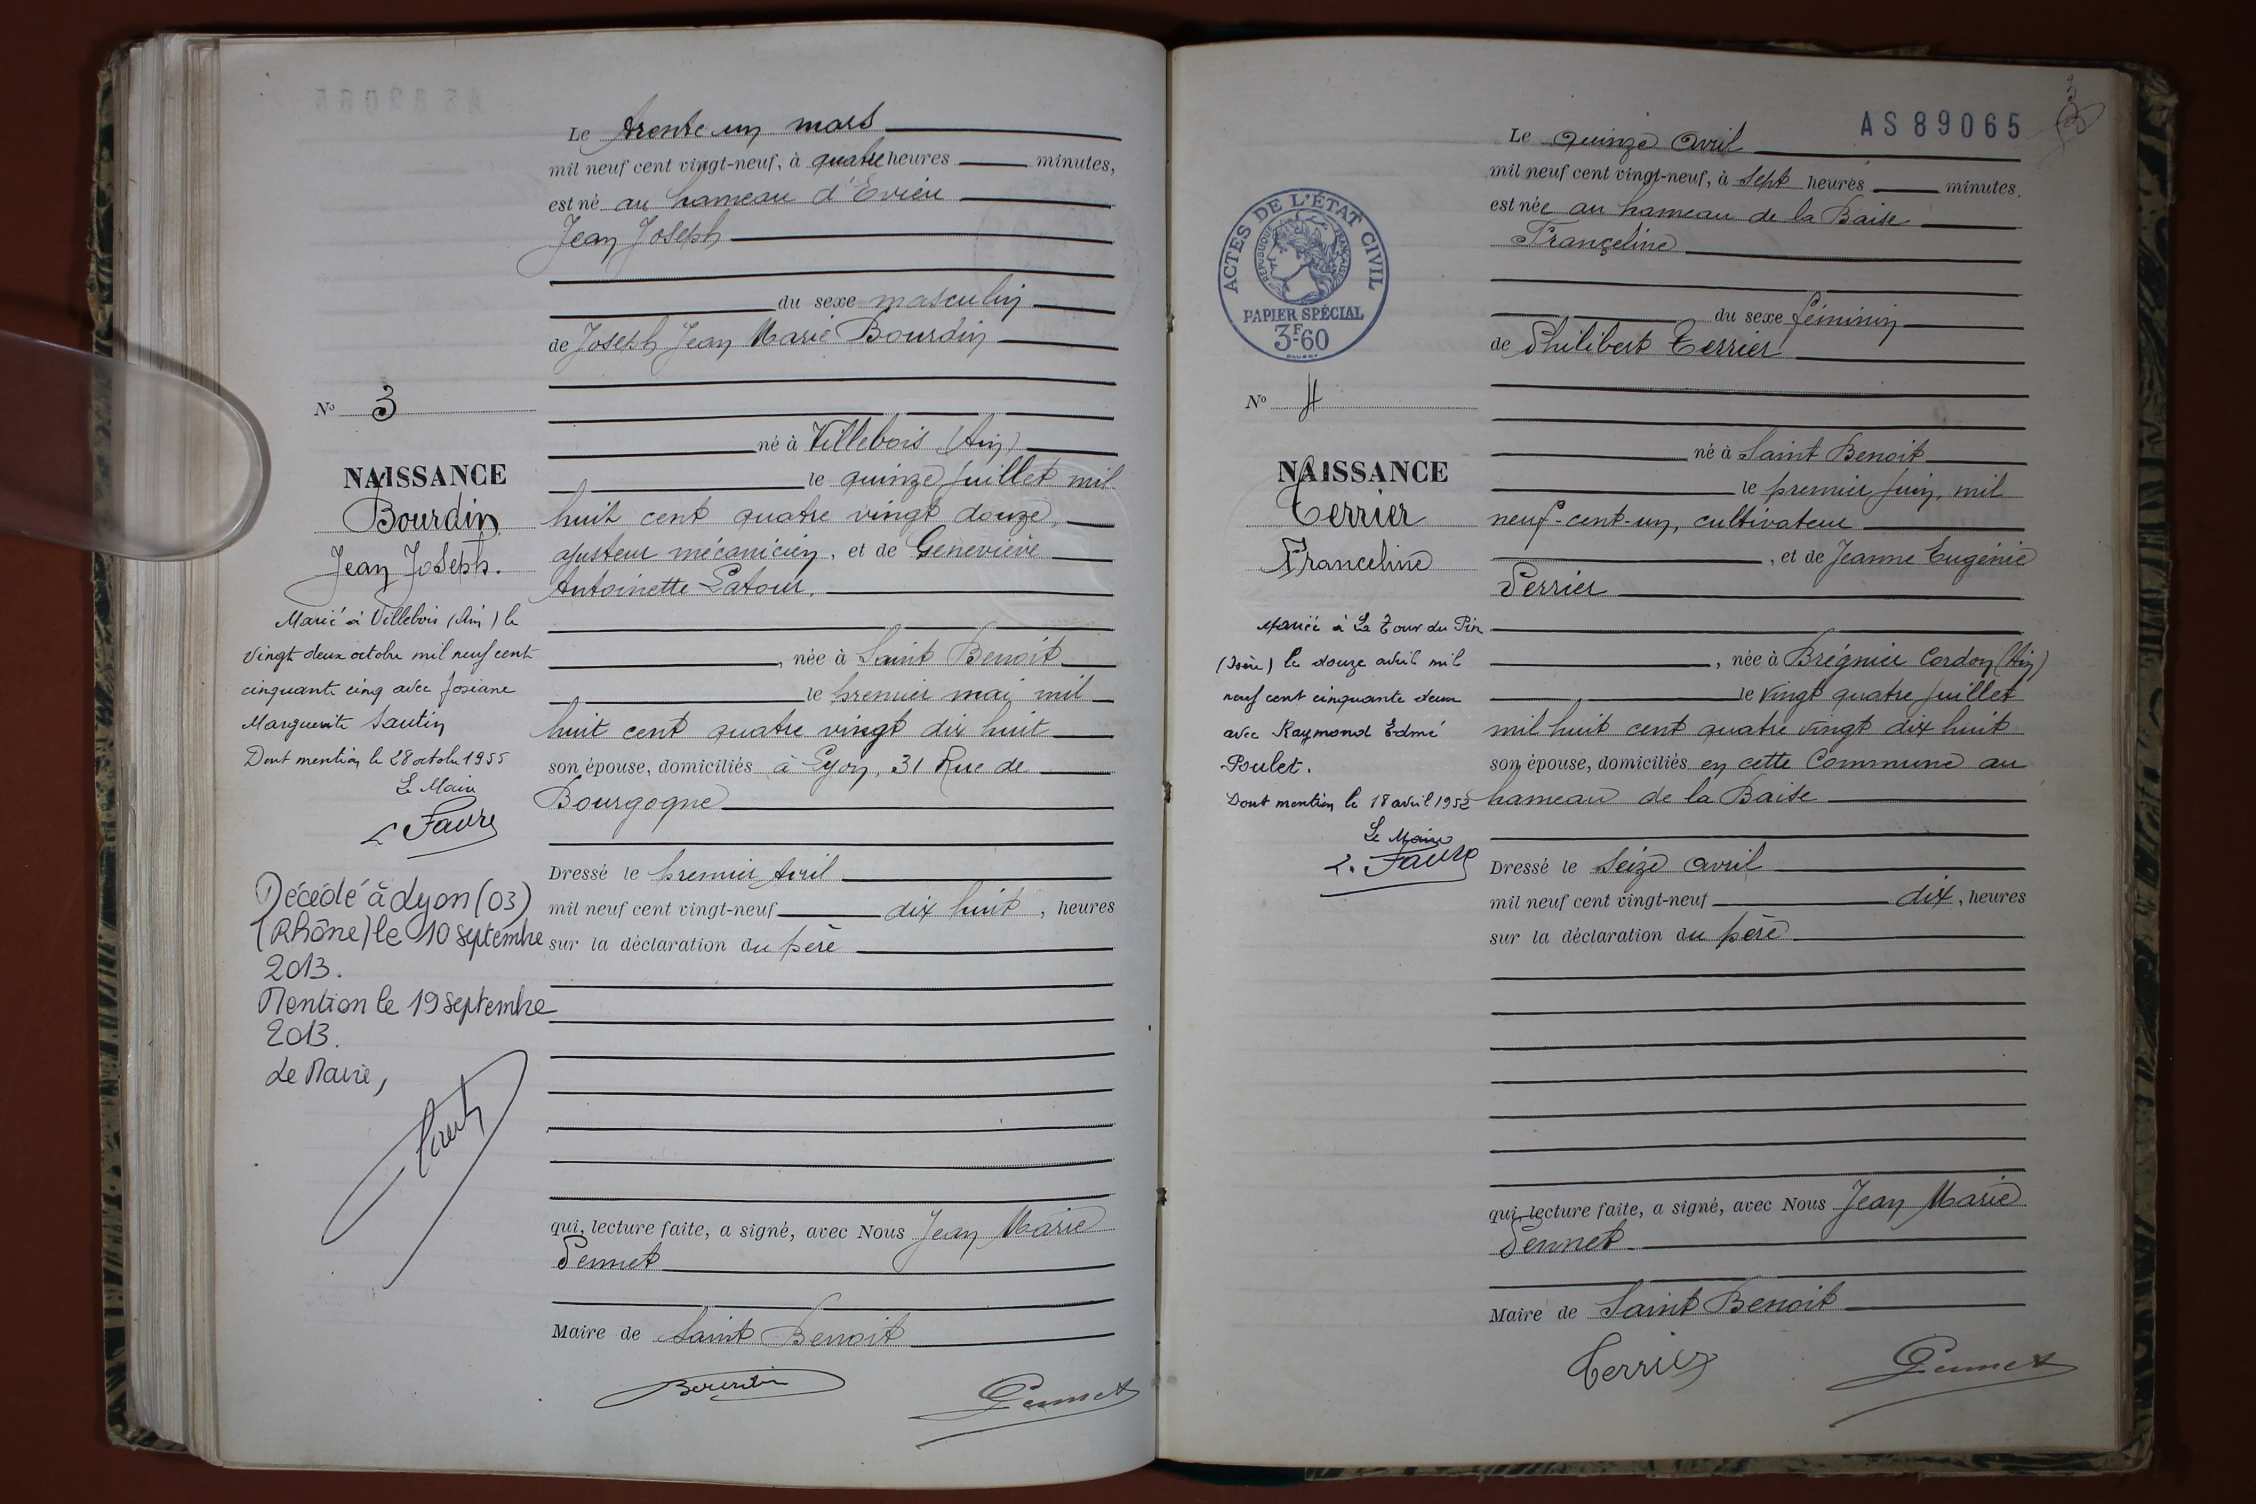 Le trente un mars
mil neuf cent vingt-neuf, à quatre heures minutes,
est né au hameau d'Evieu
Jean Joseph
du sexe masculin
de Joseph Jean Marie Bourdin
né à Villebois (Ain)
le quinze juillet mil
huit cent quatre vingt douze,
ajusteur mécanicien, et de Geneviève
Antoinette Latour,
, née à Saint Benoit
le premier mai mil
huit cent quatre vingt dix huit
son épouse, domiciliés à Lyon, 31 Rue de
Bourgogne
Dressé le premier Avril
mil neuf cent vingt-neuf dix huit, heures
sur la déclaration du père
qui, lecture faite, a signé, avec Nous Jean Marie
Pennet
Maire de Saint Benoit
Bourdin
Pennet
No 3
NAISSANCE
Bourdin
Jean Joseph.
Marié à Villebois (Ain) le
vingt deux octobre mil neuf cent
cinquante cinq avec Josiane
Marguerite Sautin
Dont mention le 28 octobre 1955
Le Maire
L Favre
Décédé à Lyon (03)
(Rhône) le 10 septembre
2013.
Mention le 19 septembre
2013.
Le Maire,
AS 89065
Le quinze avril
mil neuf cent vingt-neuf, à sept heures minutes.
est née au hameau de la Baise
Françeline
du sexe féminin
de Philibert Terrier
né à Saint Benoit
le premier juin, mil
neuf-cent-un, cultivateur
, et de Jeanne Eugénie
Perrier
, née à Brégnier Cordon (Ain)
le vingt quatre juillet
mil huit cent quatre vingt dix huit
son épouse, domiciliés en cette Commune au
hameau de la Baise
Dressé le seize avril
mil neuf cent vingt-neuf dix, heures
sur la déclaration du père
qui, lecture faite, a signé, avec Nous Jean Marie
Pennet
Maire de Saint Benoit
Terrier
Pennet
ACTES DE L'ÉTAT CIVIL
RÉPUBLIQUE FRANÇAISE
PAPIER SPÉCIAL
3F60
No 4
NAISSANCE
Terrier
Franceline
Mariée à La Tour du Pin
(Isère) le douze avril mil
neuf cent cinquante deux
avec Raymond Edmé
Poulet.
Dont mention le 18 avril 1952
Le Maire
L. Favre